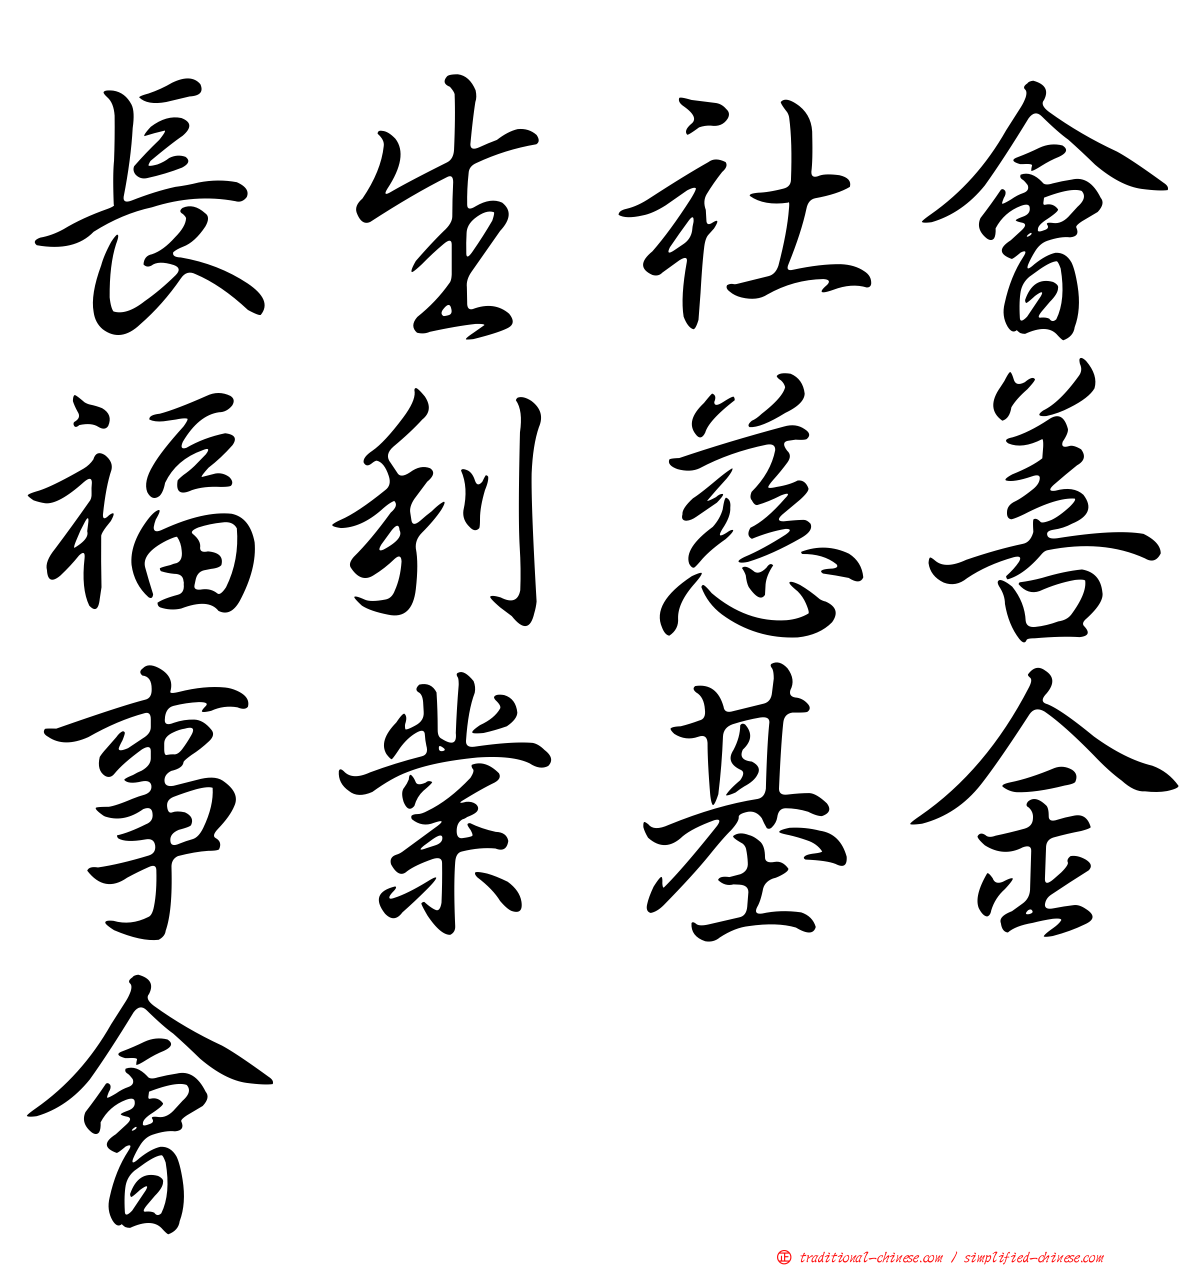 長生社會
福利慈善
事業基金
會
正 traditional-chinese.com / simplified-chinese.com